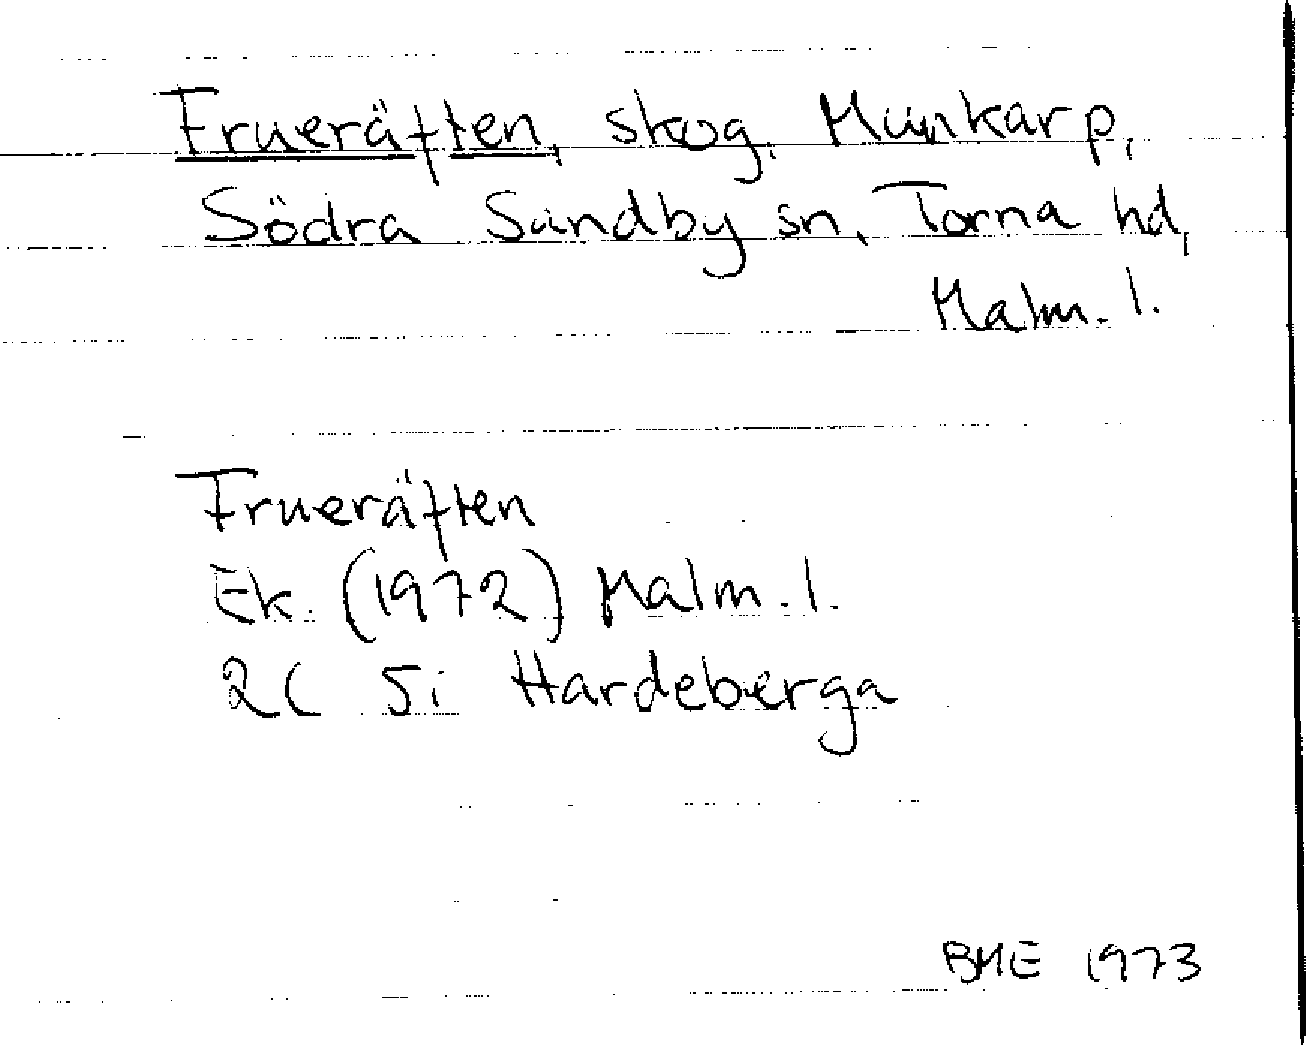 Frueräften, skog, Munkarp,
Södra Sandby sn, Torna hd,
Malm. l.
Frueräften
Ek. (1972) Malm. l.
2C 5i Hardeberga
BME 1973